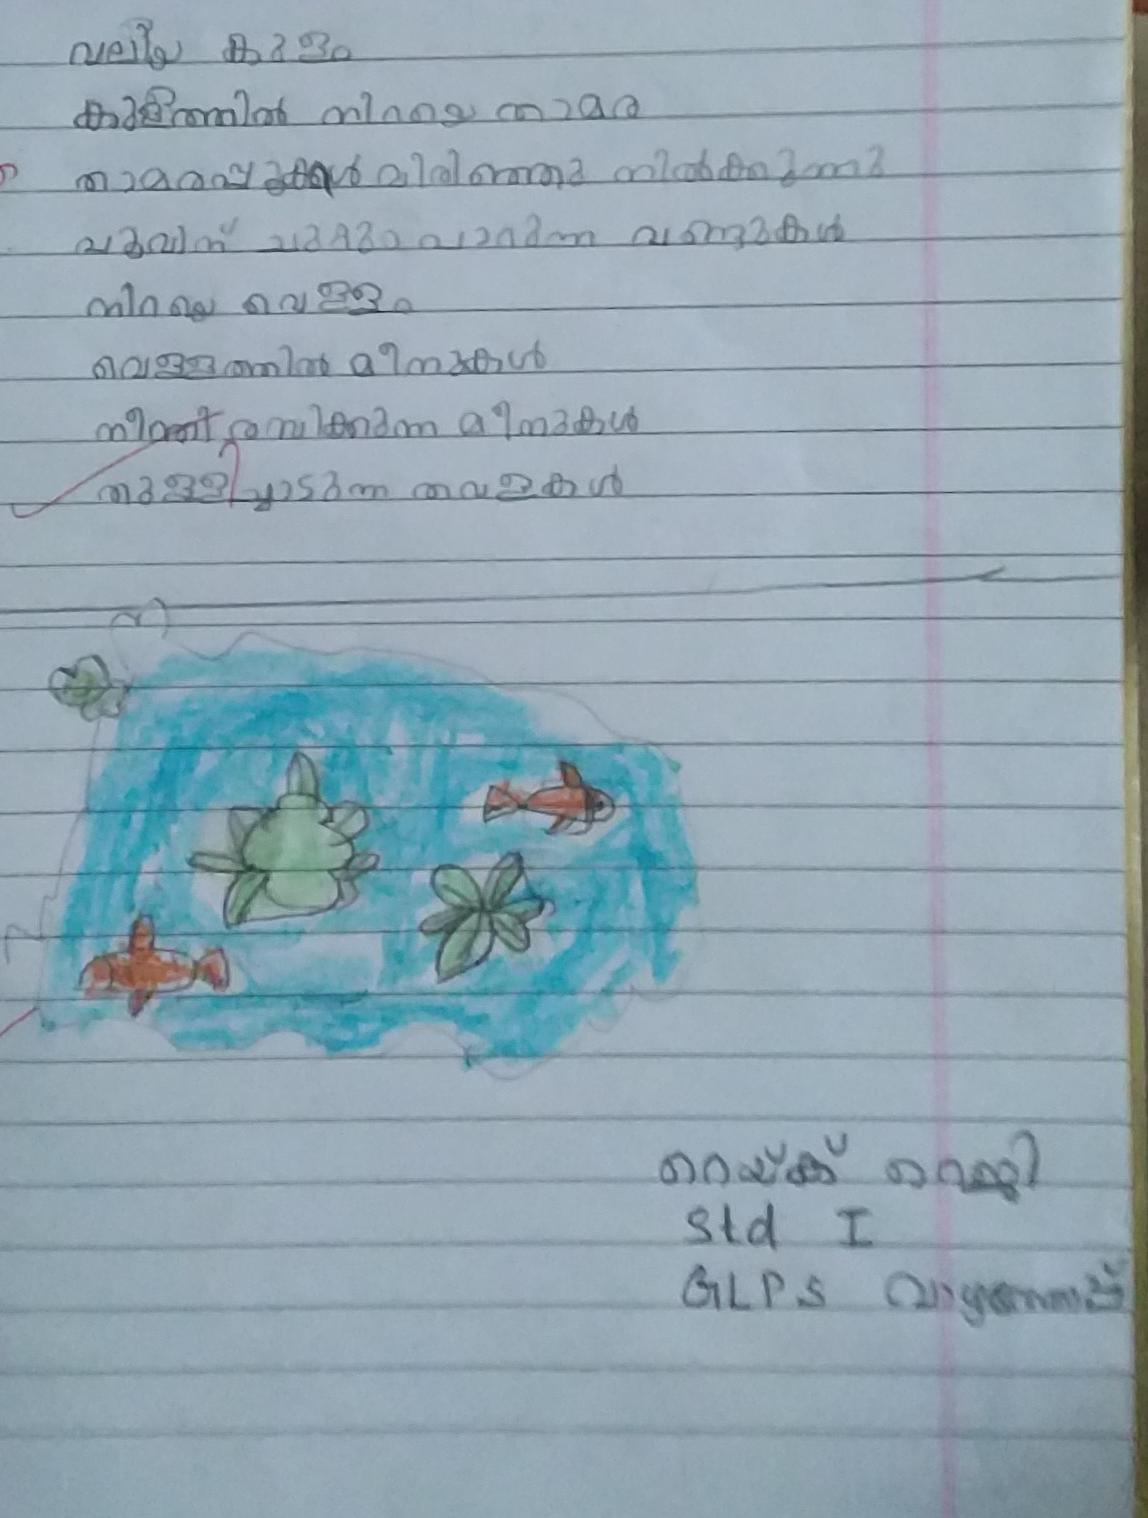 വലിയ കുളം
കുളത്തിൽ നിറയെ താമര
താമരപ്പൂക്കൾ വിരിഞ്ഞു നിൽക്കുന്നു
ചുറ്റും പാറുന്ന വണ്ടുകൾ
നിറയെ വെള്ളം
വെള്ളത്തിൽ മീനുകൾ
നീന്തി രസിക്കുന്ന മീനുകൾ
തുള്ളിച്ചാടുന്ന തവളകൾ
Std I
GLPS